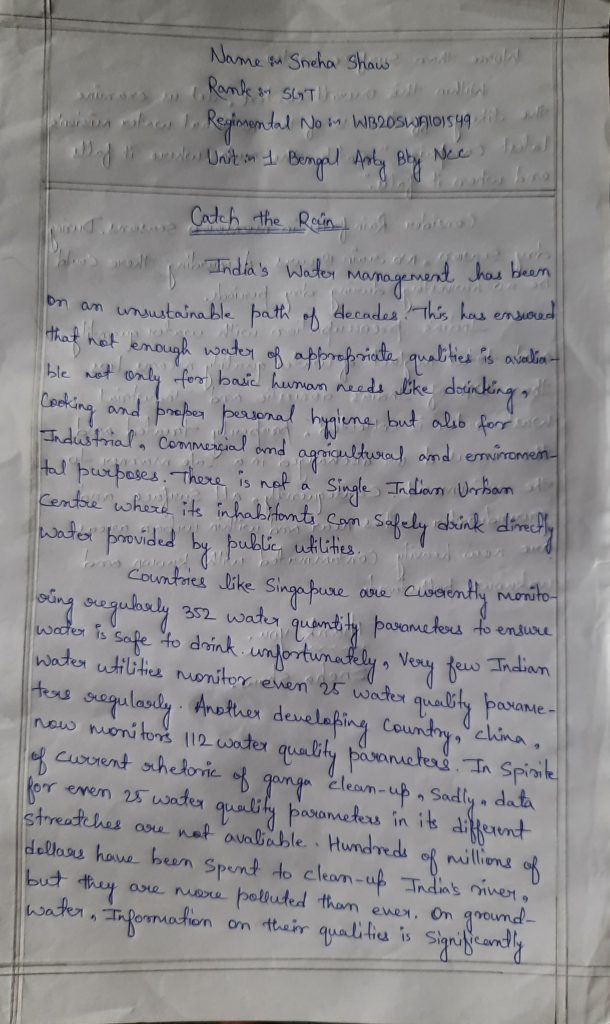 Name :- Sneha Shaw
Rank :- SGT
Regimental No :- WB20SWA101549
Unit :- 1 Bengal Arty Bty Ncc
Catch the Rain
India's Water management has been
on an unsustainable path of decades. This has ensured
that not enough water of appropriate qualities is avalia-
ble not only for basic human needs like drinking,
Cooking and proper personal hygiene but also for
Industrial, Commercial and agricultural and enviromen-
tal purposes. There is not a Single Indian Urban
Centre where its inhabitants can Safely drink directly
water provided by public utilities.
Countries like Singapure are Currently monito-
ring regularly 352 water quantity parameters to ensure
water is safe to drink. unfortunately, Very few Indian
water utilities monitor even 25 water quality parame-
ters regularly. Another developing Country, china,
now monitors 112 water quality parameters. In Spirite
of current rhetoric of ganga clean-up, Sadly, data
for even 25 water quality parameters in its different
streatches are not avaliable. Hundreds of millions of
dollars have been Spent to clean-up India's river,
but they are more polluted than ever. On ground-
water, Information on their qualities is Significantly